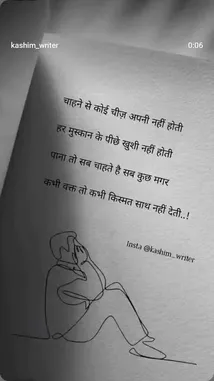 kashim_writer 0:06
चाहने से कोई चीज़ अपनी नहीं होती
हर मुस्कान के पीछे खुशी नहीं होती
पाना तो सब चाहते है सब कुछ मगर
कभी वक्त तो कभी किस्मत साथ नहीं देती..!
Insta @kashim_writer